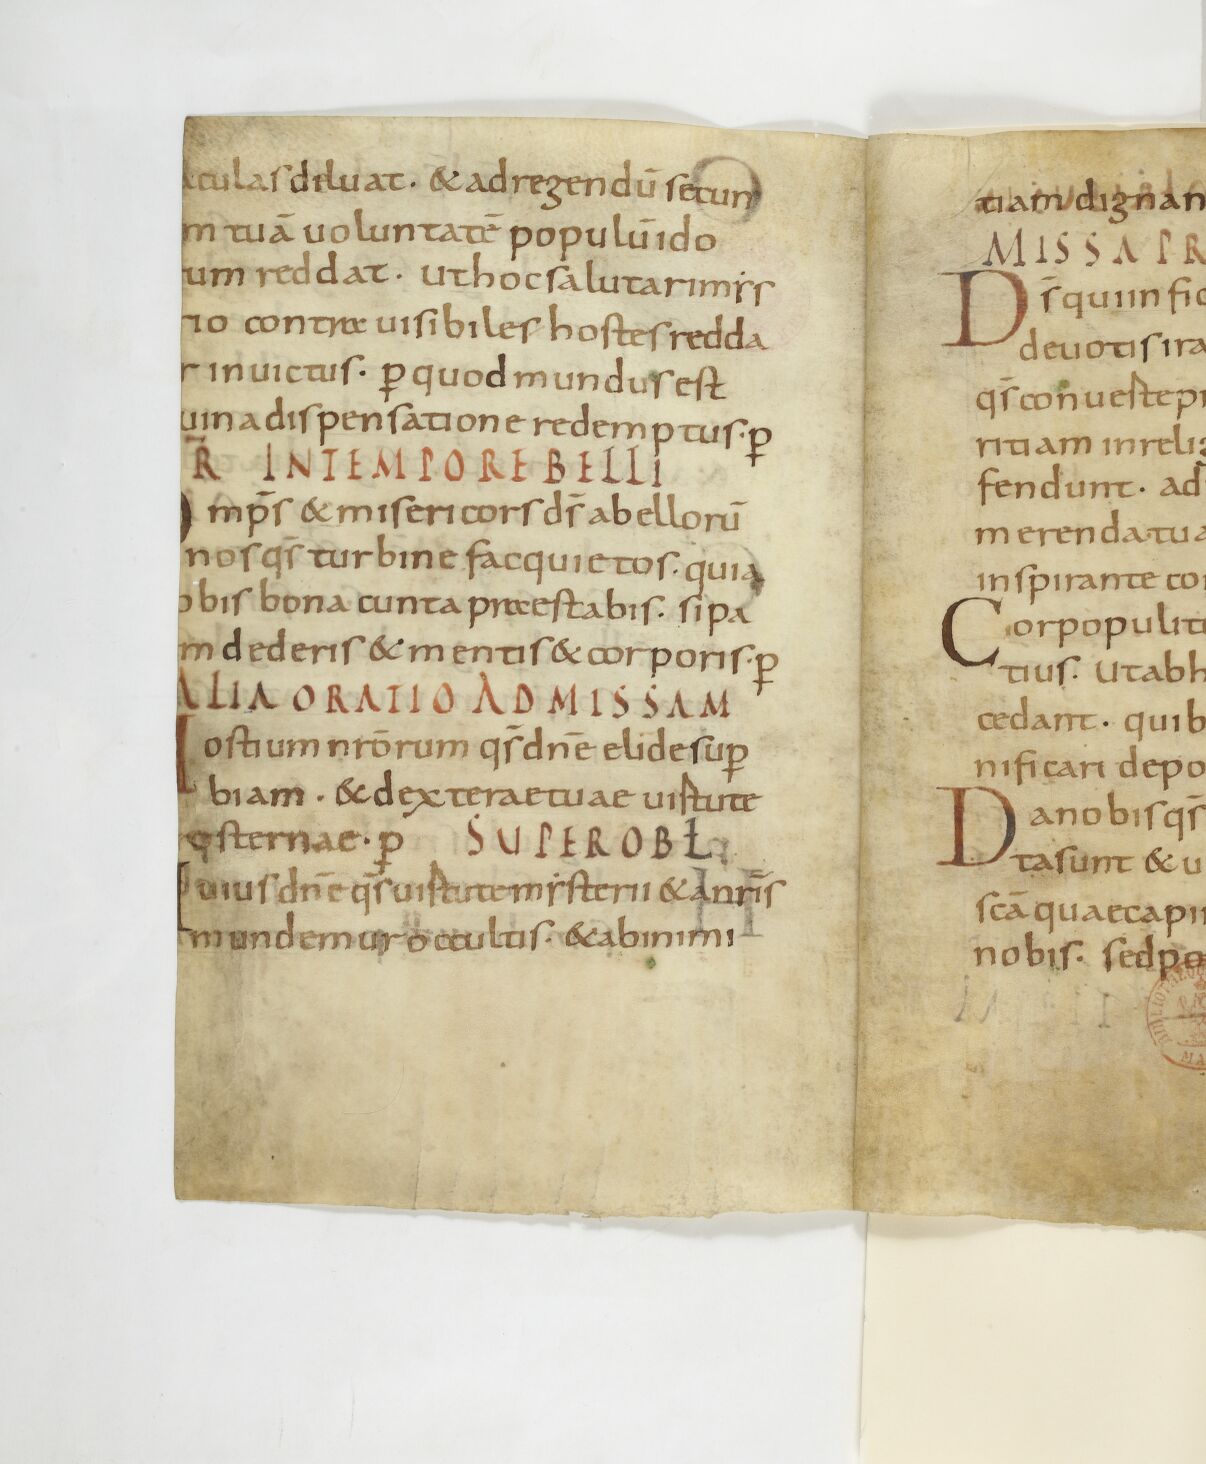 culas diluat. & ad regendū secun
m tuā uoluntatē populū ido
um reddat. ut hoc salutari mys
rio contrae uisibiles hostes redda
r inuictus. ꝑ quod mundus est
uina dispensatione redemptus. ꝑ
R̄ IN TEMPORE BELLI
O mp̄s & misericors ds̄ a bellorū
nos qs̄ turbine fac quietos. quia
obis bona cunta praeestabis. si pa
m dederis & mentis & corporis. ꝑ
ALIA ORATIO AD MISSAM
H ostium nrōrum qs̄ dnē elide suꝑ
biam. & dexterae tuae uirtute
osternae. ꝑ SUPER OBŁ
H uius dnē qs̄ uirtute mysterii & a nrīs
mundemur occultis. & ab inimi
tiam dignan
MISSA PR
D s̄ qui in fid
deuotis ira
qs̄ conueste pi
ritiam in relig
fendunt. ad
merenda tua
inspirante co
C or populi
tius. ut ab h
cedant. quib
nificari depo
D a nobis qs̄
ta sunt & u
scā quae capi
nobis. sed po